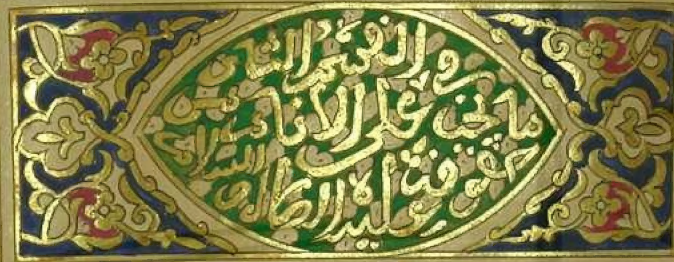 القسم الثاني
فيما يجب على الأنام من
حقوقه عليه الصلاة والسلام